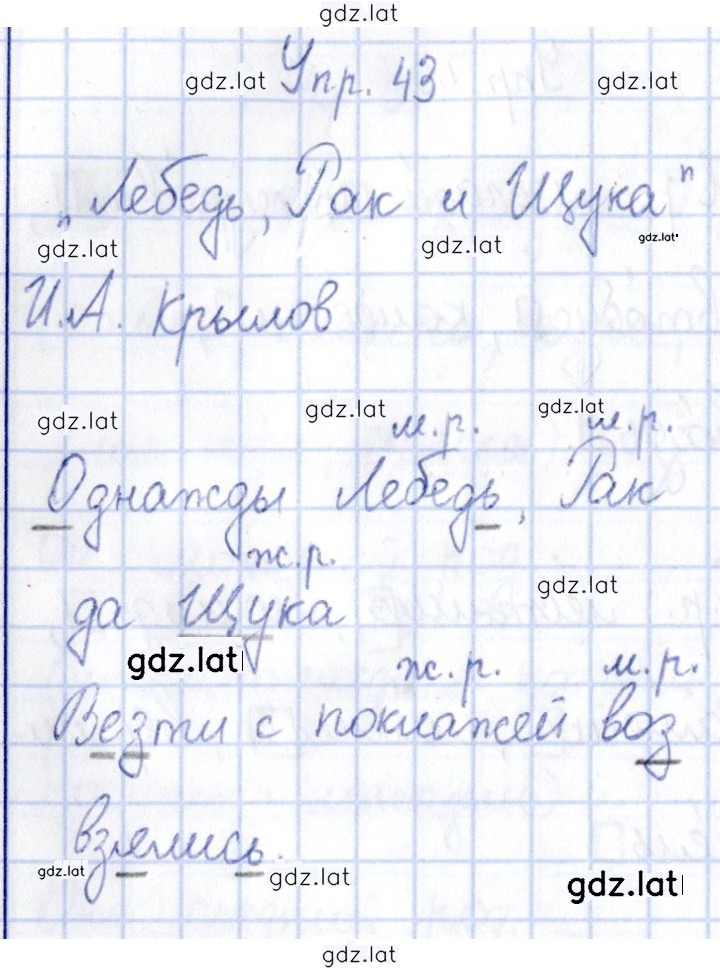 gdz.lat
Упр. 43
gdz.lat gdz.lat
„Лебедь, Рак и Щука"
gdz.lat gdz.lat gdz.lat
И.А. Крылов
gdz.lat gdz.lat gdz.lat
м.р. м.р.
Однажды Лебедь, Рак
ж.р.
gdz.lat
да Щука
gdz.lat
ж.р. м.р.
Везти с поклажей воз
взялись.
gdz.lat gdz.lat gdz.lat
gdz.lat